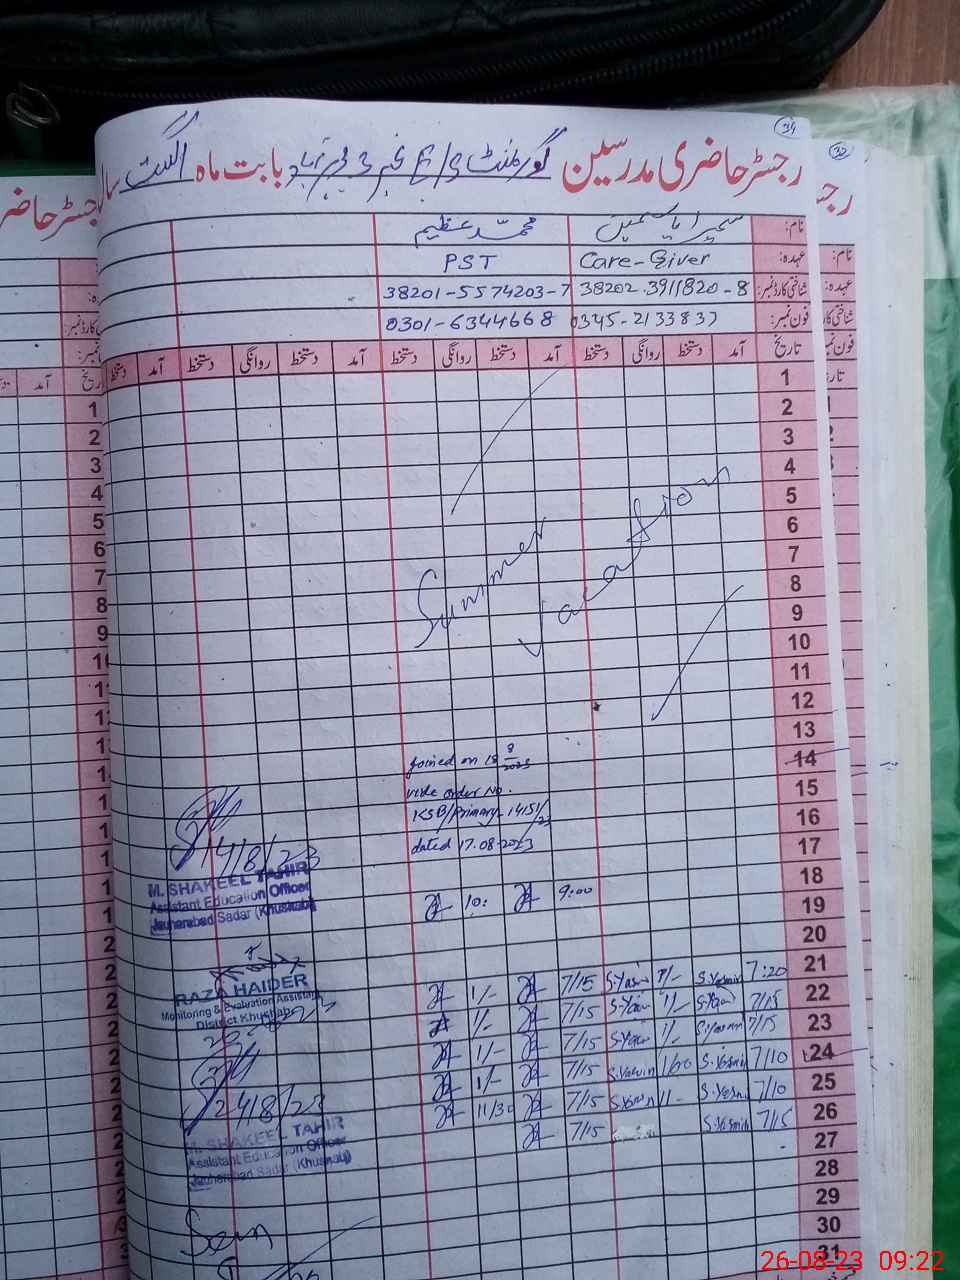 34
رجسٹر حاضری مدرسین گورنمنٹ بابت ماہ اگست سال
32
نام: سمیرا یاسمین محمد عظیم
عہدہ: Care-Giver PST
شناختی کارڈ نمبر: 38202-3911820-8 38201-5574203-7
فون نمبر: 0345-2133837 0301-6344668
تاریخ آمد دستخط روانگی دستخط آمد دستخط روانگی دستخط آمد دستخط روانگی دستخط آمد دستخط
1
2
3
4
5
6
7
8
9
10
11
12
13
14
15
16
17
18
19
20
21
22
23
24
25
26
27
28
29
30
31
Summer
Vacation
Joined on 18 8/2023
vide order No.
KSB/Primary-14151/23
dated 17.08.2023
9:00 10:
7:20 S.Yasmin 1/- 7/15 1/-
7/15 1/- 7/15 1/-
7/15 1/- 7/15 1/-
7/10 S.Yasmin 1/00 7/15 1/-
7/10 1/- 7/15 11/30
7/15 S.Yasmin 7/15
14/8/23
M. SHAKEEL TAHIR
Assistant Education Officer
Jauharabad Sadar (Khushab)
RAZA HAIDER
Monitoring & Evaluation Assistant
District Khushab
24/8/23
M. SHAKEEL TAHIR
Assistant Education Officer
Jauharabad Sadar (Khushab)
26-08-23 09:22